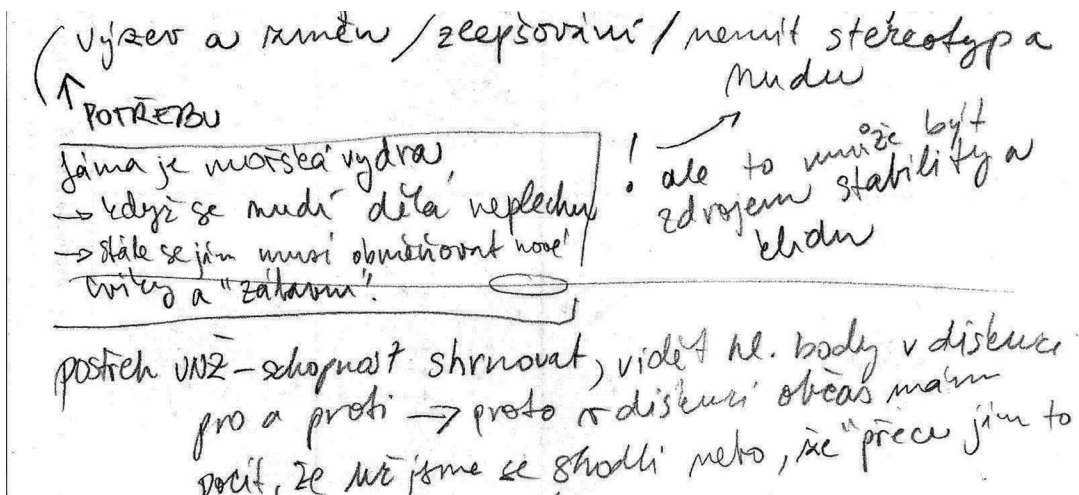 výzev a změn / zlepšování / nemít stereotyp a
nudu
POTŘEBU
Jáma je mořská vydra
→ když se nudí dělá neplechu
→ stále se jim musí obměňovat nové
cviky a "zábavu".
! ale to může být
zdrojem stability a
klidu
postřeh VNŽ - schopnost shrnovat, vidět hl. body v diskuzi
pro a proti → proto v diskuzi občas mám
pocit, že už jsme se shodli nebo, že "přece jim to